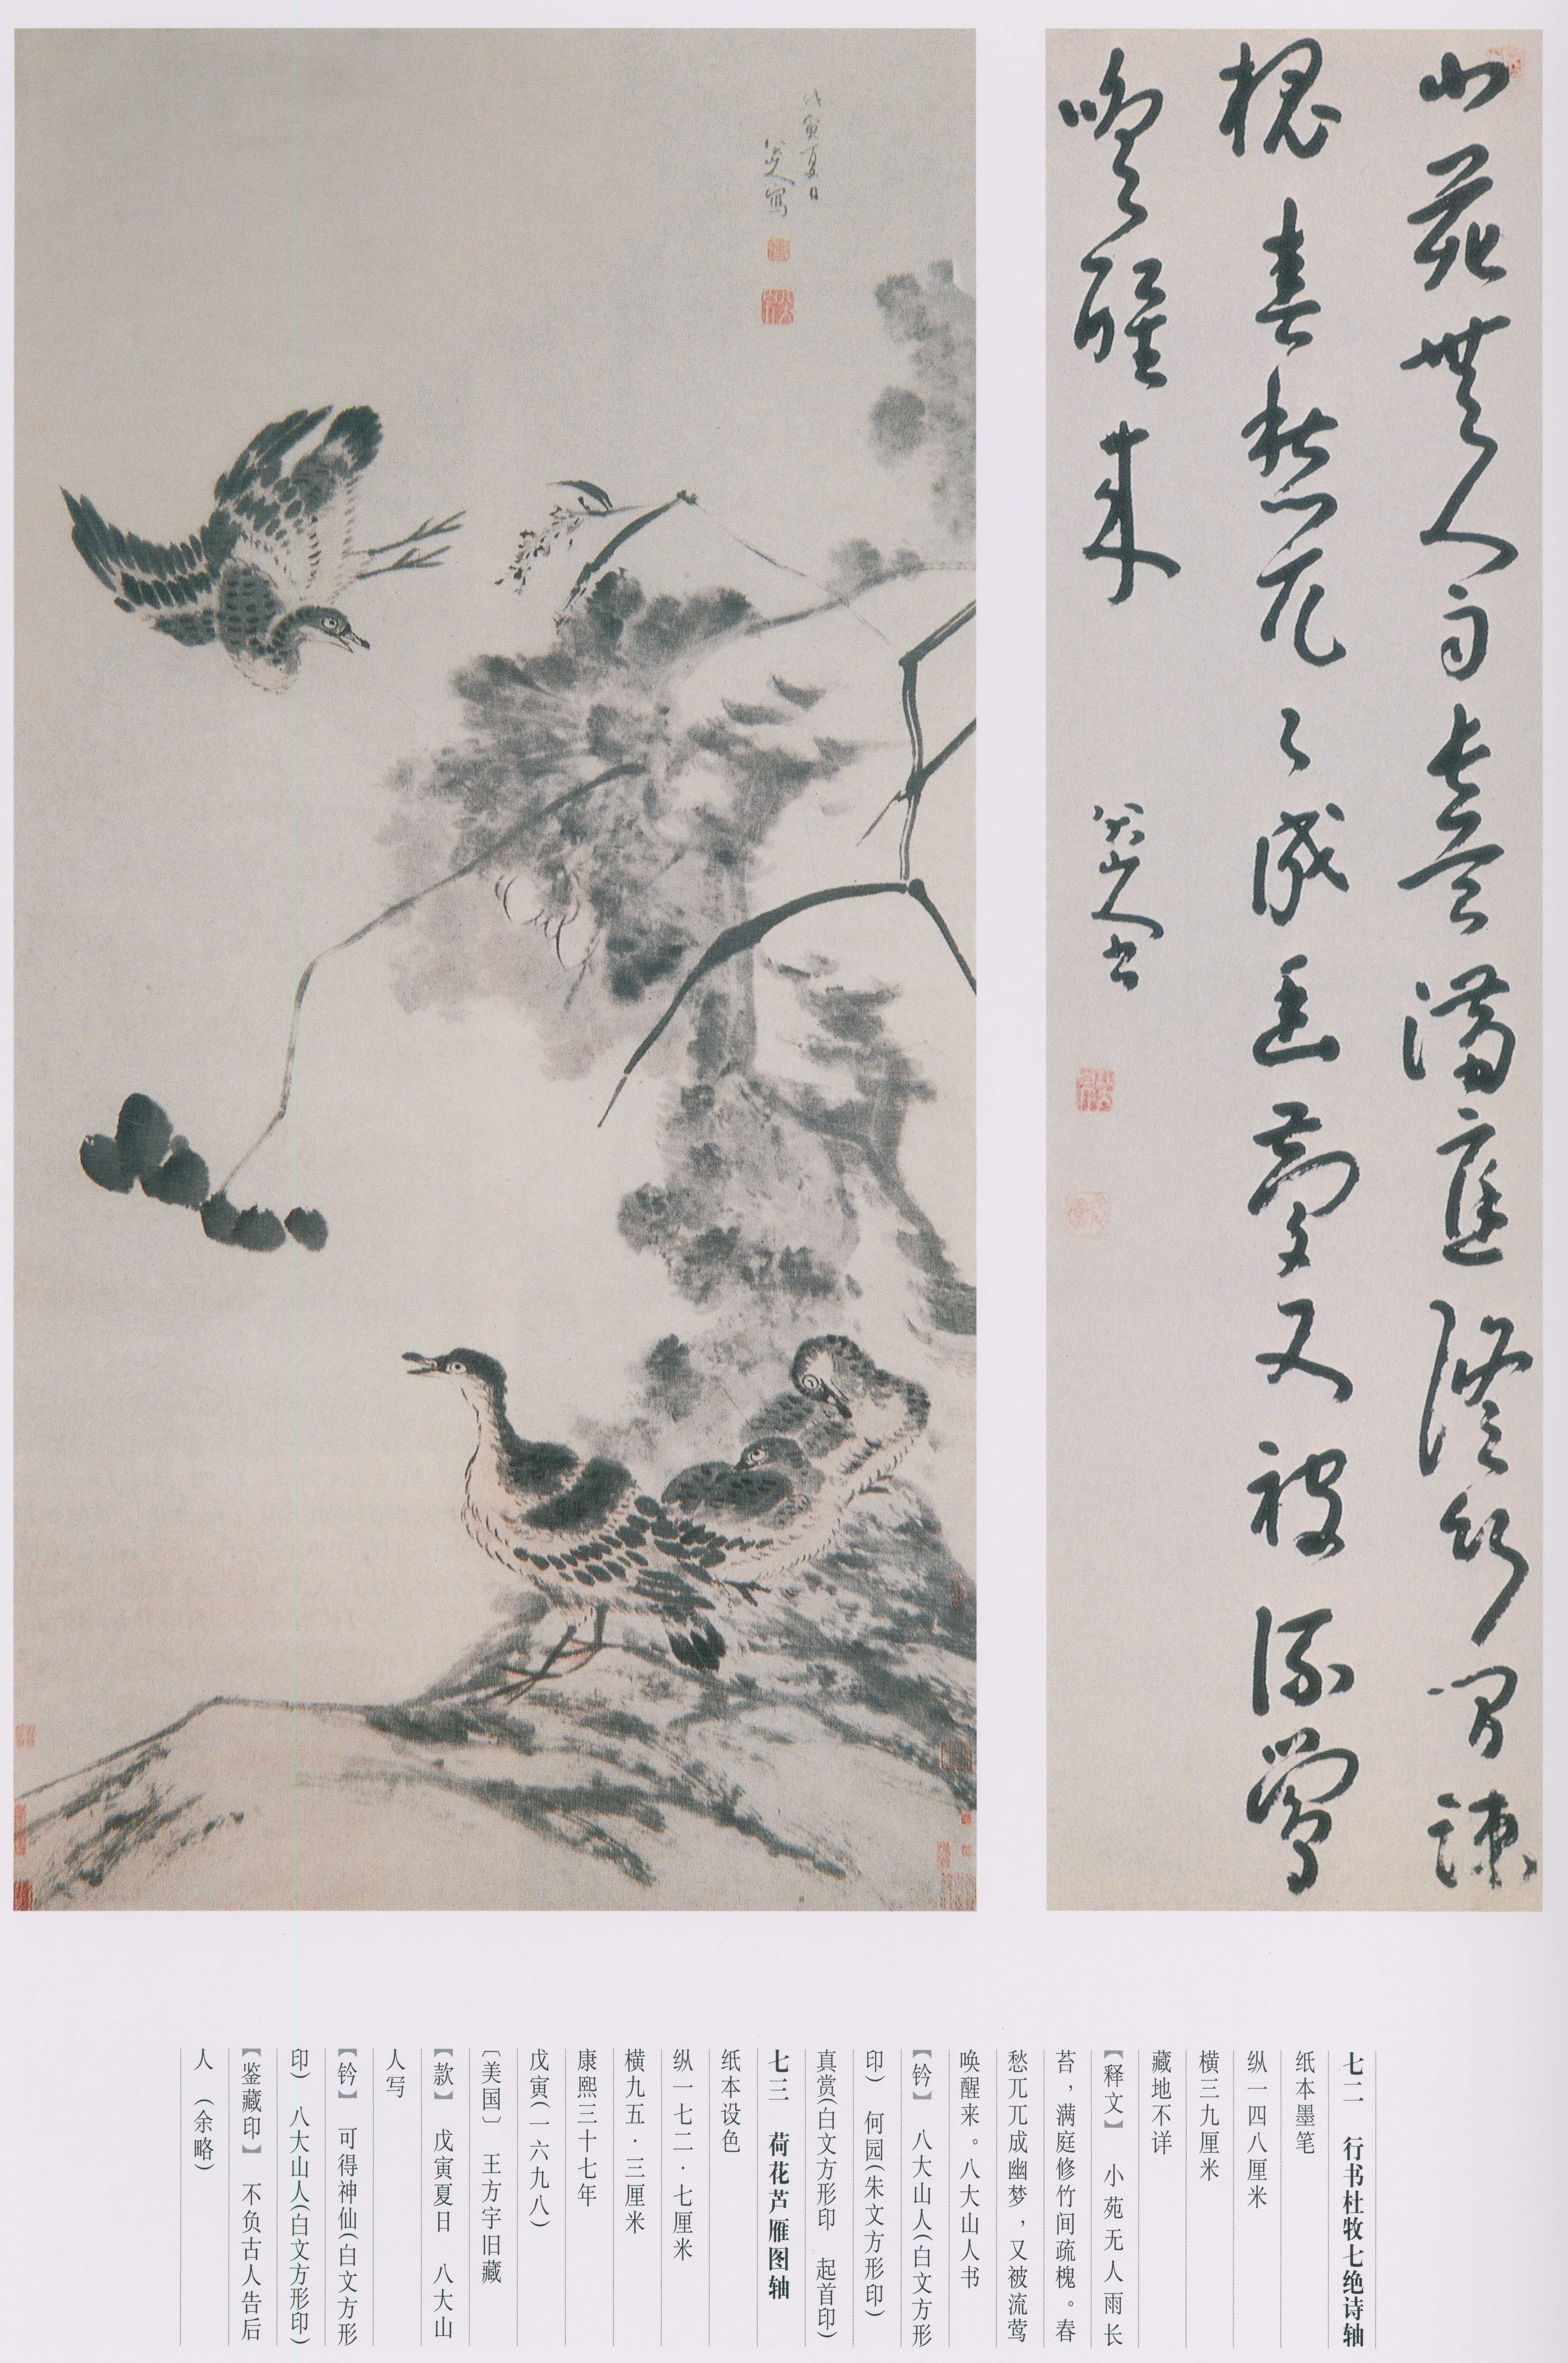 小苑無人雨長苔滿庭脩竹間疎
槐春愁兀〻成幽夢又被流鶯
喚醒来
八大山人书
戊寅夏日
八大山人寫
七二　行书杜牧七绝诗轴
纸本墨笔
纵一四八厘米
横三九厘米
藏地不详
【释文】　小苑无人雨长
苔，满庭修竹间疏槐。春
愁兀兀成幽梦，又被流莺
唤醒来。八大山人书
【钤】　八大山人(白文方形
印)　何园(朱文方形印)
真赏(白文方形印　起首印)
七三　荷花芦雁图轴
纸本设色
纵一七二·七厘米
横九五·三厘米
康熙三十七年
戊寅(一六九八)
〔美国〕　王方宇旧藏
【款】　戊寅夏日　八大山
人写
【钤】　可得神仙(白文方形
印)　八大山人(白文方形印)
【鉴藏印】　不负古人告后
人　(余略)